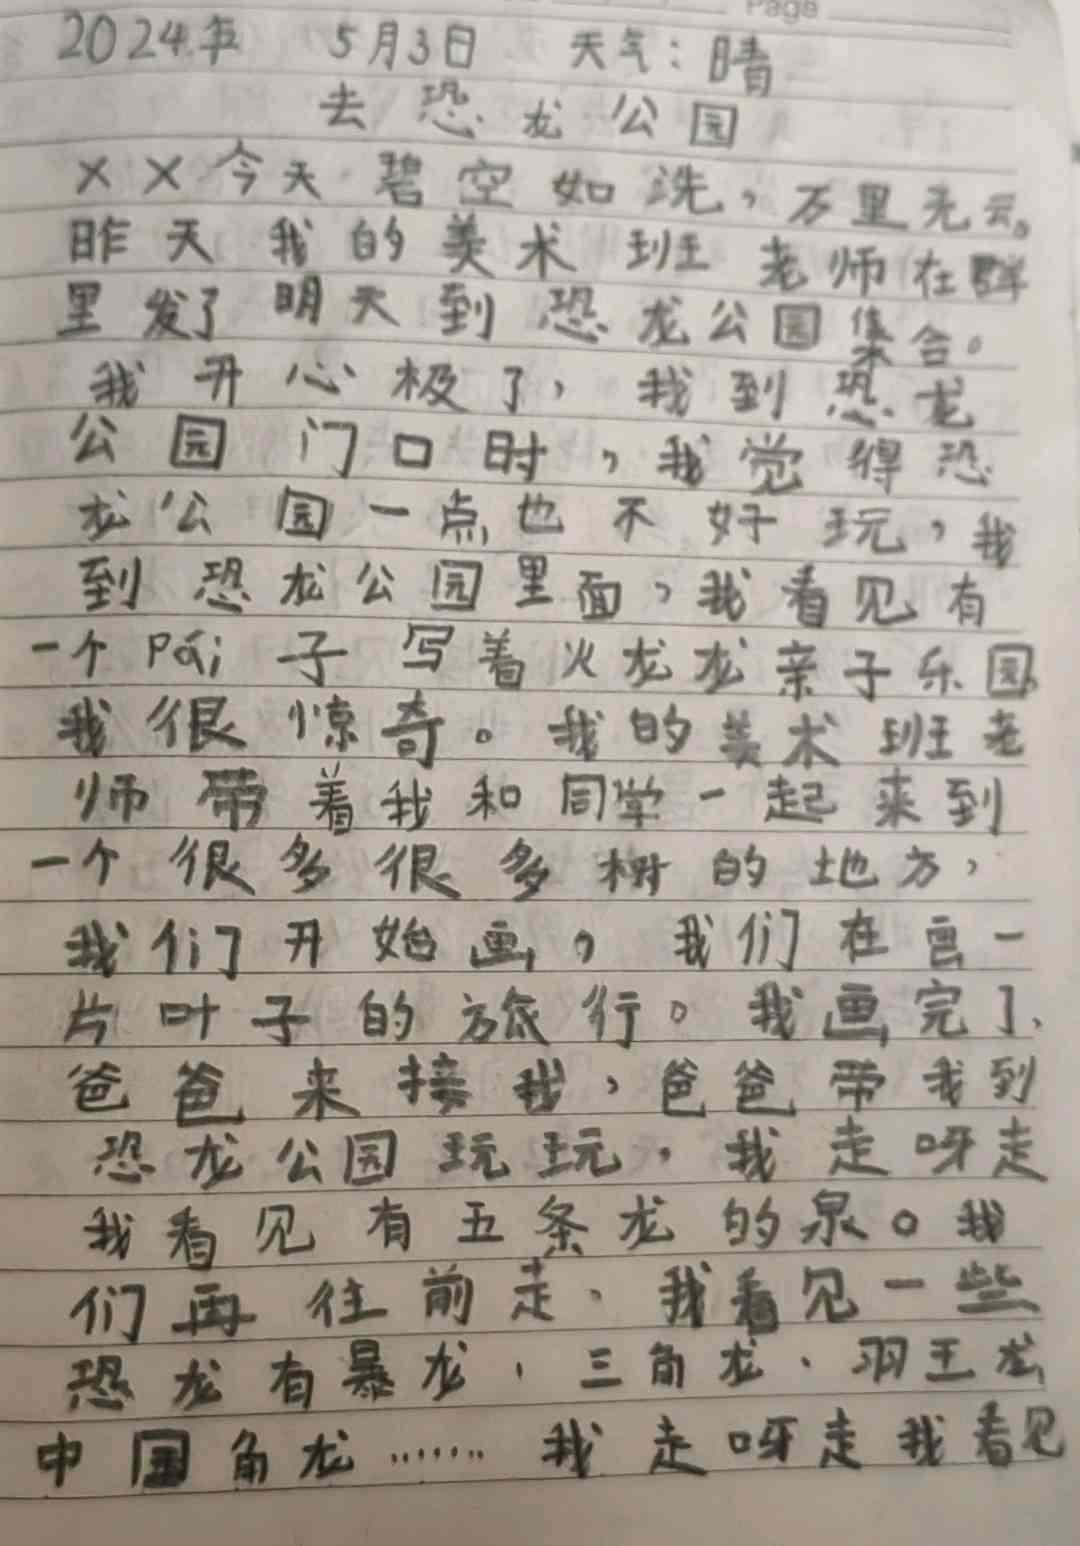 Page
2024年 5月3日 天气：晴
去恐龙公园
××今天碧空如洗，万里无云。
昨天我的美术班老师在群
里发了明天到恐龙公园集合。
我开心极了，我到恐龙
公园门口时，我觉得恐
龙公园一点也不好玩，我
到恐龙公园里面，我看见有
一个pái子写着火龙龙亲子乐园，
我很惊奇。我的美术班老
师带着我和同学一起来到
一个很多很多树的地方，
我们开始画，我们在画一
片叶子的旅行。我画完了、
爸爸来接我，爸爸带我到
恐龙公园玩玩，我走呀走
我看见有五条龙的泉。我
们再往前走、我看见一些
恐龙有暴龙，三角龙、羽王龙
中国角龙……我走呀走我看见